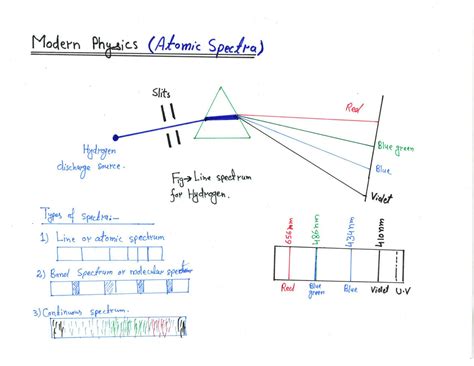 Modern Physics (Atomic Spectra)
Slits
Red
Blue green
Blue
Violet
Hydrogen
discharge source.
Fig→ Line spectrum
for Hydrogen.
Types of spectra:-
1) Line or atomic spectrum
2) Band Spectrum or molecular spectra
3) Continuous spectrum.
656nm
486nm
434nm
410nm
Red
Blue
green
Blue
Violet
U.V